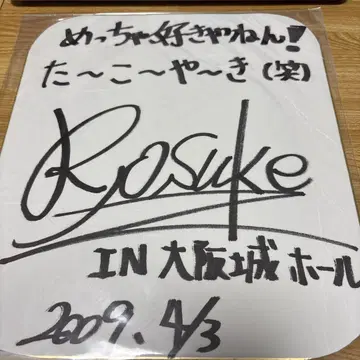 めっちゃ好きやねん!
た〜こ〜や〜き(笑)
Rosuke
IN 大阪城ホール
2009. 4/3